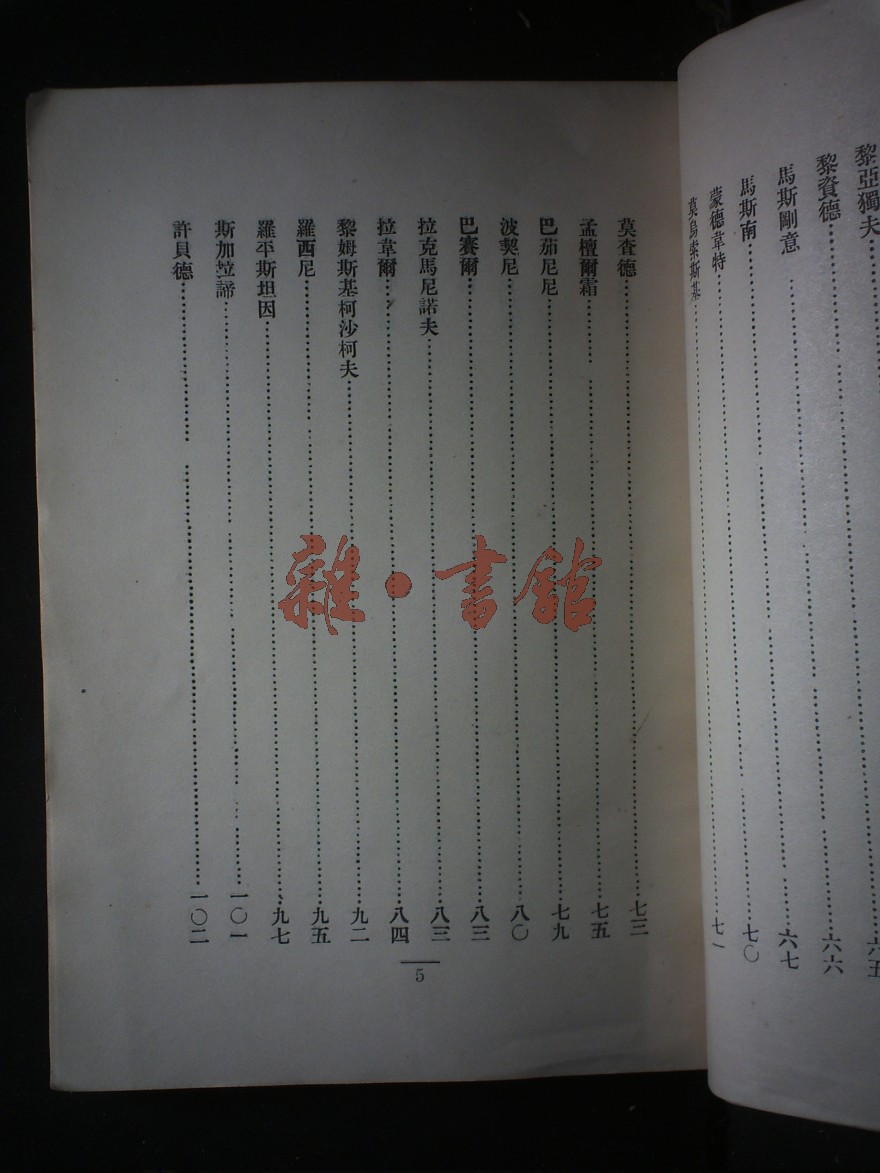 黎亞獨夫……六五
黎資德……六六
馬斯剛意……六七
馬斯南……七〇
蒙德韋特……七一
莫烏索斯基……
莫查德……七三
孟檀爾霜……七五
巴茄尼尼……七九
波契尼……八〇
巴賽爾……八三
拉克馬尼諾夫……八三
拉韋爾……八四
黎姆斯基柯沙柯夫……九二
羅西尼……九五
羅平斯坦因……九七
斯加拉諦……一〇一
許貝德……一〇二
5
雜·書館